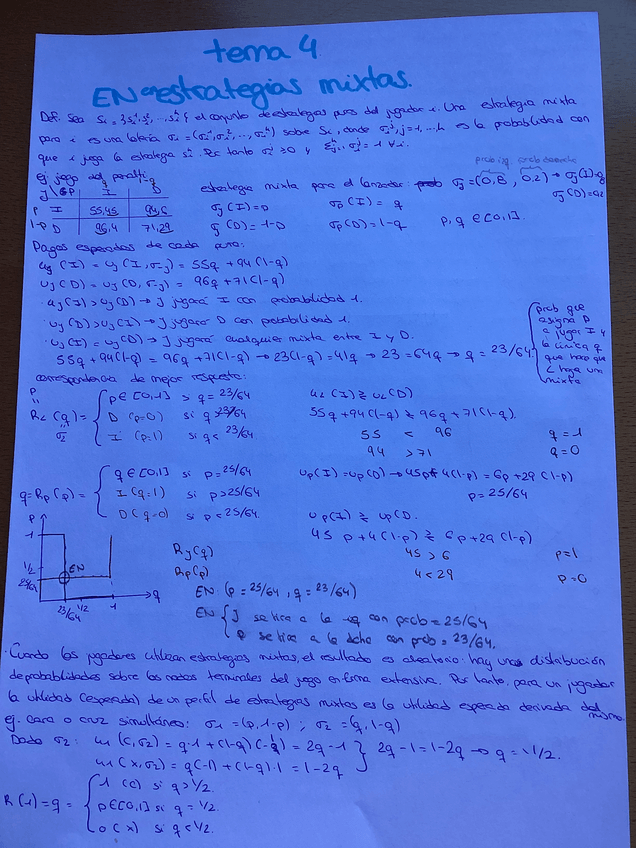 tema 4.
EN en estrategias mixtas.
Def: Sea Si = {si¹, si², ..., siⁿ} el conjunto de estrategias puras del jugador i. Una estrategia mixta
para i es una lotería σi = (σi¹, σi², ..., σiⁿ) sobre Si, donde σiʲ, j=1, ..., n es la probabilidad con
que i juega la estrategia siʲ. Por tanto σiʲ ≥ 0 y Σ σiʲ = 1 ∀i.
ej: juego del penalti
prob izq prob derecha
estrategia mixta para el lanzador: σj = (0,8 , 0,2)
q 1-q
J\P I D
p I 55,45 94,6
1-p D 96,4 71,29
σj(I) = p σp(I) = q
σj(D) = 1-p σp(D) = 1-q p, q ∈ [0,1].
Pagos esperados de cada puro:
uj(I) = uj(I, σ-j) = 55q + 94(1-q)
uj(D) = uj(D, σ-j) = 96q + 71(1-q)
· uj(I) > uj(D) → J jugará I con probabilidad 1.
· uj(D) > uj(I) → J jugará D con probabilidad 1.
· uj(I) = uj(D) → J jugará cualquier mixta entre I y D.
55q + 94(1-q) = 96q + 71(1-q) → 23(1-q) = 41q → 23 = 64q → q = 23/64
prob que
asigna P
a jugar I y
la única q
que hace que
L haga un
mixta
correspondencia de mejor respuesta:
p = RL(q) = { p ∈ [0,1] si q = 23/64
D (p=0) si q > 23/64
I (p=1) si q < 23/64
σ2
uL(I) ≷ uL(D)
55q + 94(1-q) ≷ 96q + 71(1-q).
55 < 96 q = 1
94 > 71 q = 0
q = Rp(p) = { q ∈ [0,1] si p = 25/64
I (q=1) si p > 25/64
D (q=0) si p < 25/64.
up(I) = up(D) → 45p + 4(1-p) = 6p + 29(1-p)
p = 25/64
up(I) ≷ up(D.
45p + 4(1-p) ≷ 6p + 29(1-p)
45 > 6 p = 1
4 < 29 p = 0
p
1
1/2
25/64
EN
23/64 1/2 1 q
Rj(q)
Rp(p)
EN: (p = 25/64, q = 23/64)
EN { J se tira a la izq con prob = 25/64
P se tira a la dcha con prob = 23/64.
· Cuando los jugadores utilizan estrategias mixtas, el resultado es aleatorio: hay una distribución
de probabilidades sobre los nodos terminales del juego en forma extensiva. Por tanto, para un jugador
la utilidad (esperada) de un perfil de estrategias mixtas es la utilidad esperada derivada del
mismo.
ej. cara o cruz simultáneo: σ1 = (p, 1-p) ; σ2 = (q, 1-q)
Dado σ2: u1(C, σ2) = q·1 + (1-q)(-1) = 2q - 1
u1(X, σ2) = q(-1) + (1-q)·1 = 1-2q
} 2q-1 = 1-2q → q = 1/2.
R(1) = q = { 1 (C) si q > 1/2.
p ∈ [0,1] si q = 1/2.
0 (X) si q < 1/2.